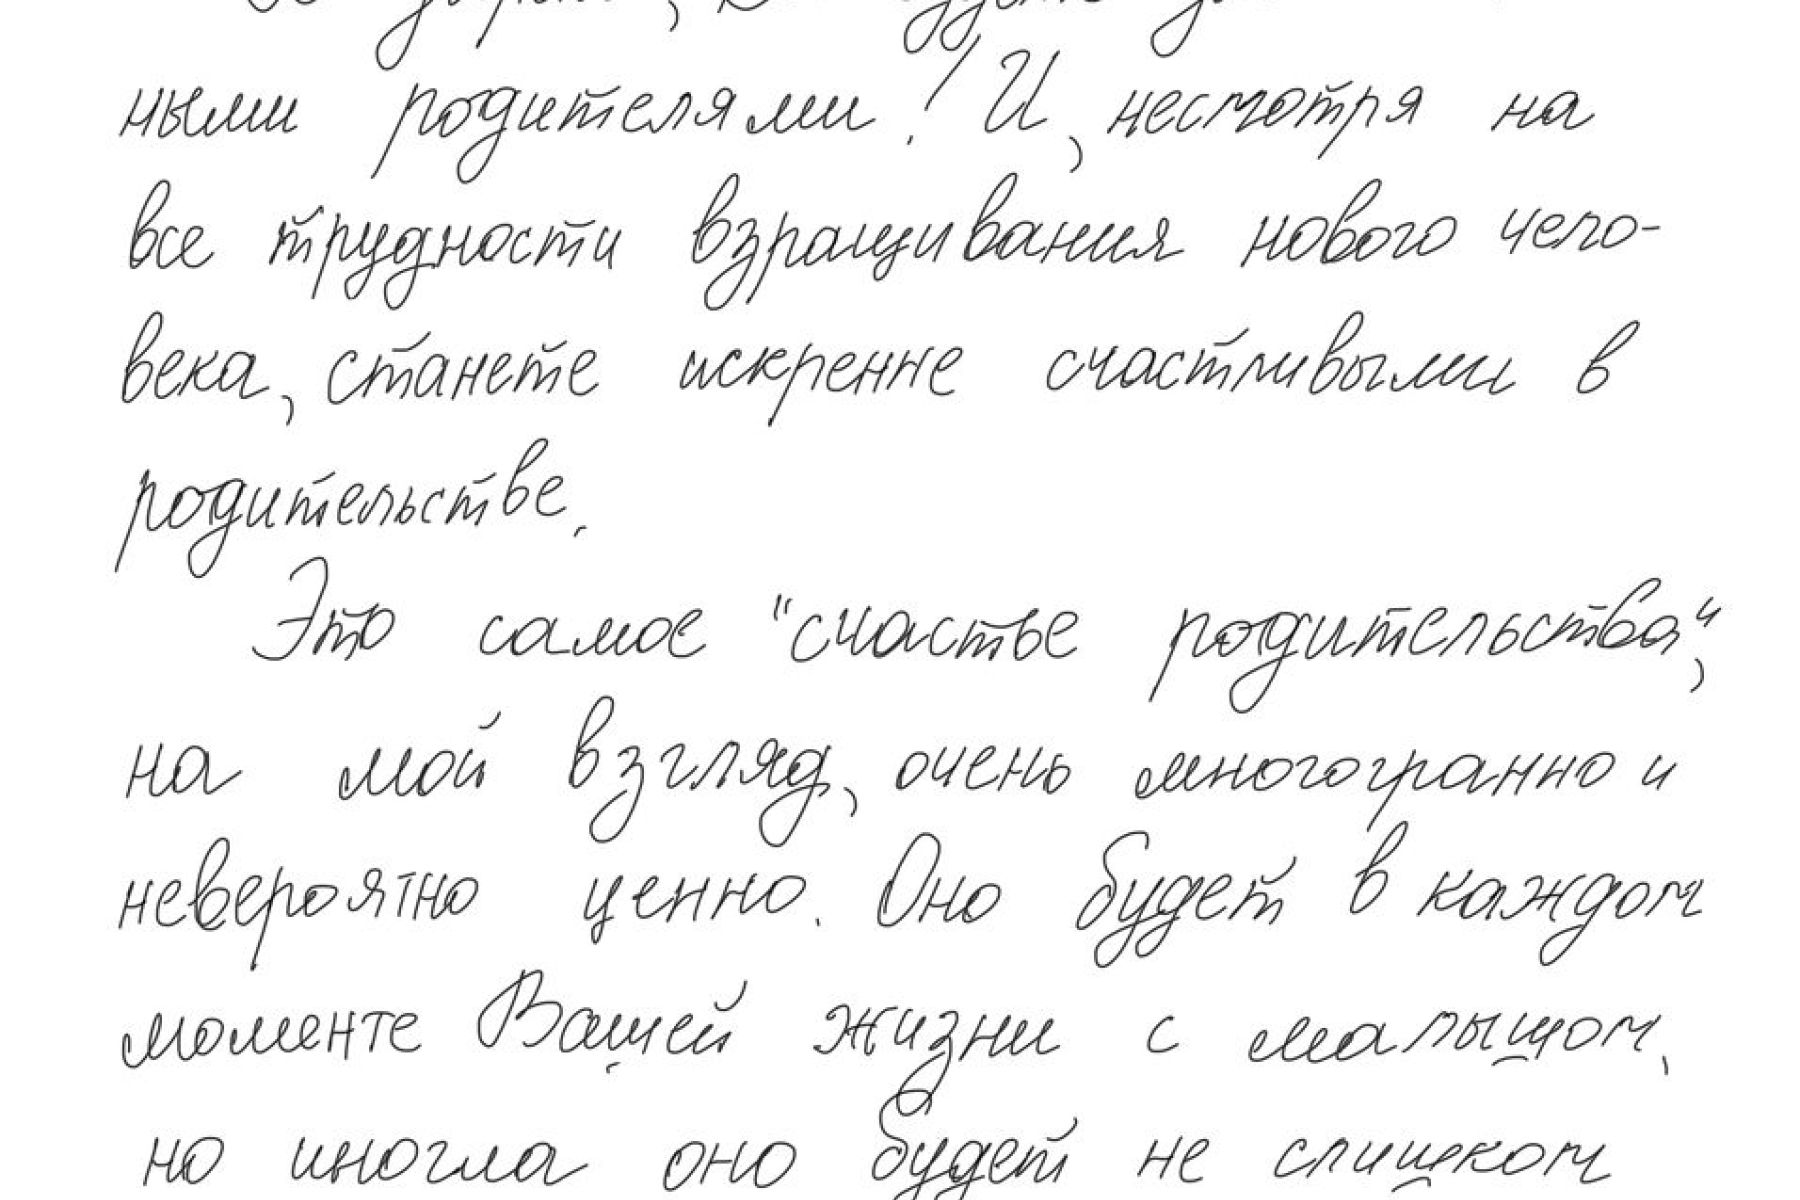 ными родителями! И, несмотря на
все трудности взращивания нового чело-
века, станете искренне счастливыми в
родительстве.
Это самое "счастье родительства",
на мой взгляд, очень многогранно и
невероятно ценно. Оно будет в каждом
моменте Вашей жизни с малышом,
но иногда оно будет не слишком